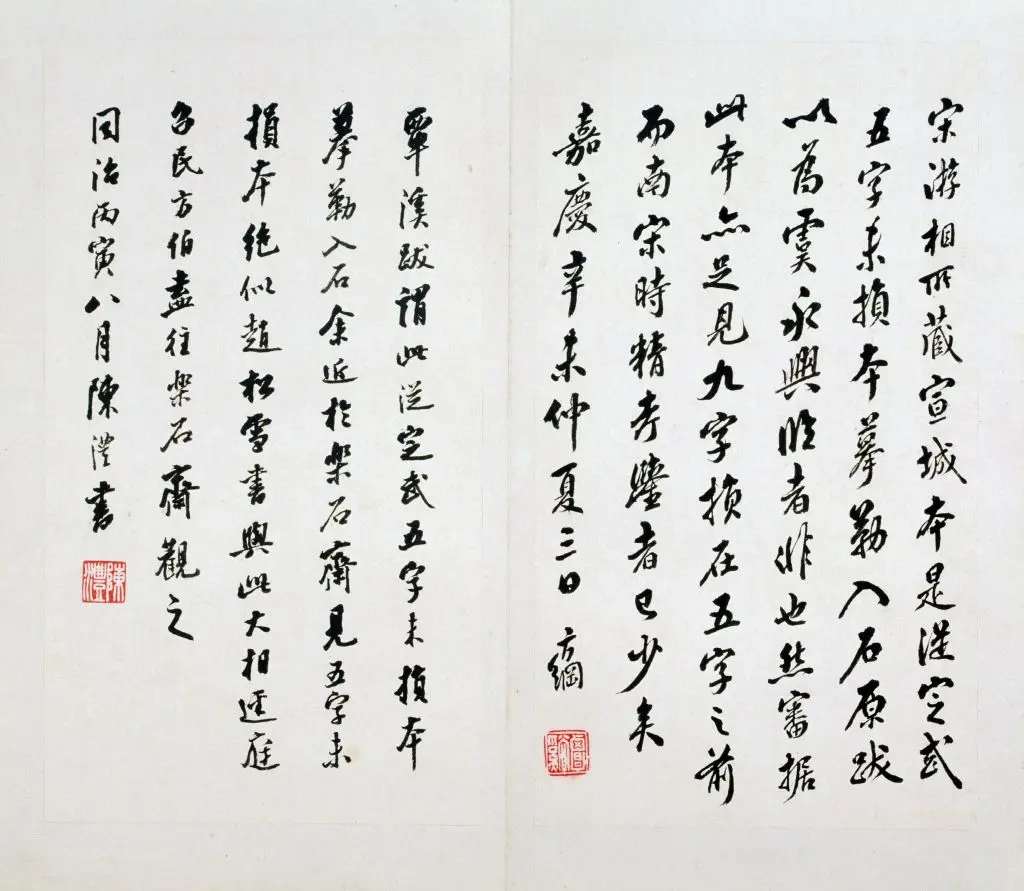 宋游相所藏宣城本是從定武
五字未損本摹勒入石原跋
以為虞永興臨者非也然審据
此本亦足見九字損在五字之前
而南宋時精考鑒者已少矣
嘉慶辛未仲夏三日 方綱
覃谿
覃溪跋謂此從定武五字未損本
摹勒入石余近於樂石齋見五字未
損本絶似趙松雪書與此大相逕庭
子民方伯盍往樂石齋觀之
同治丙寅八月陳澧書
陳澧